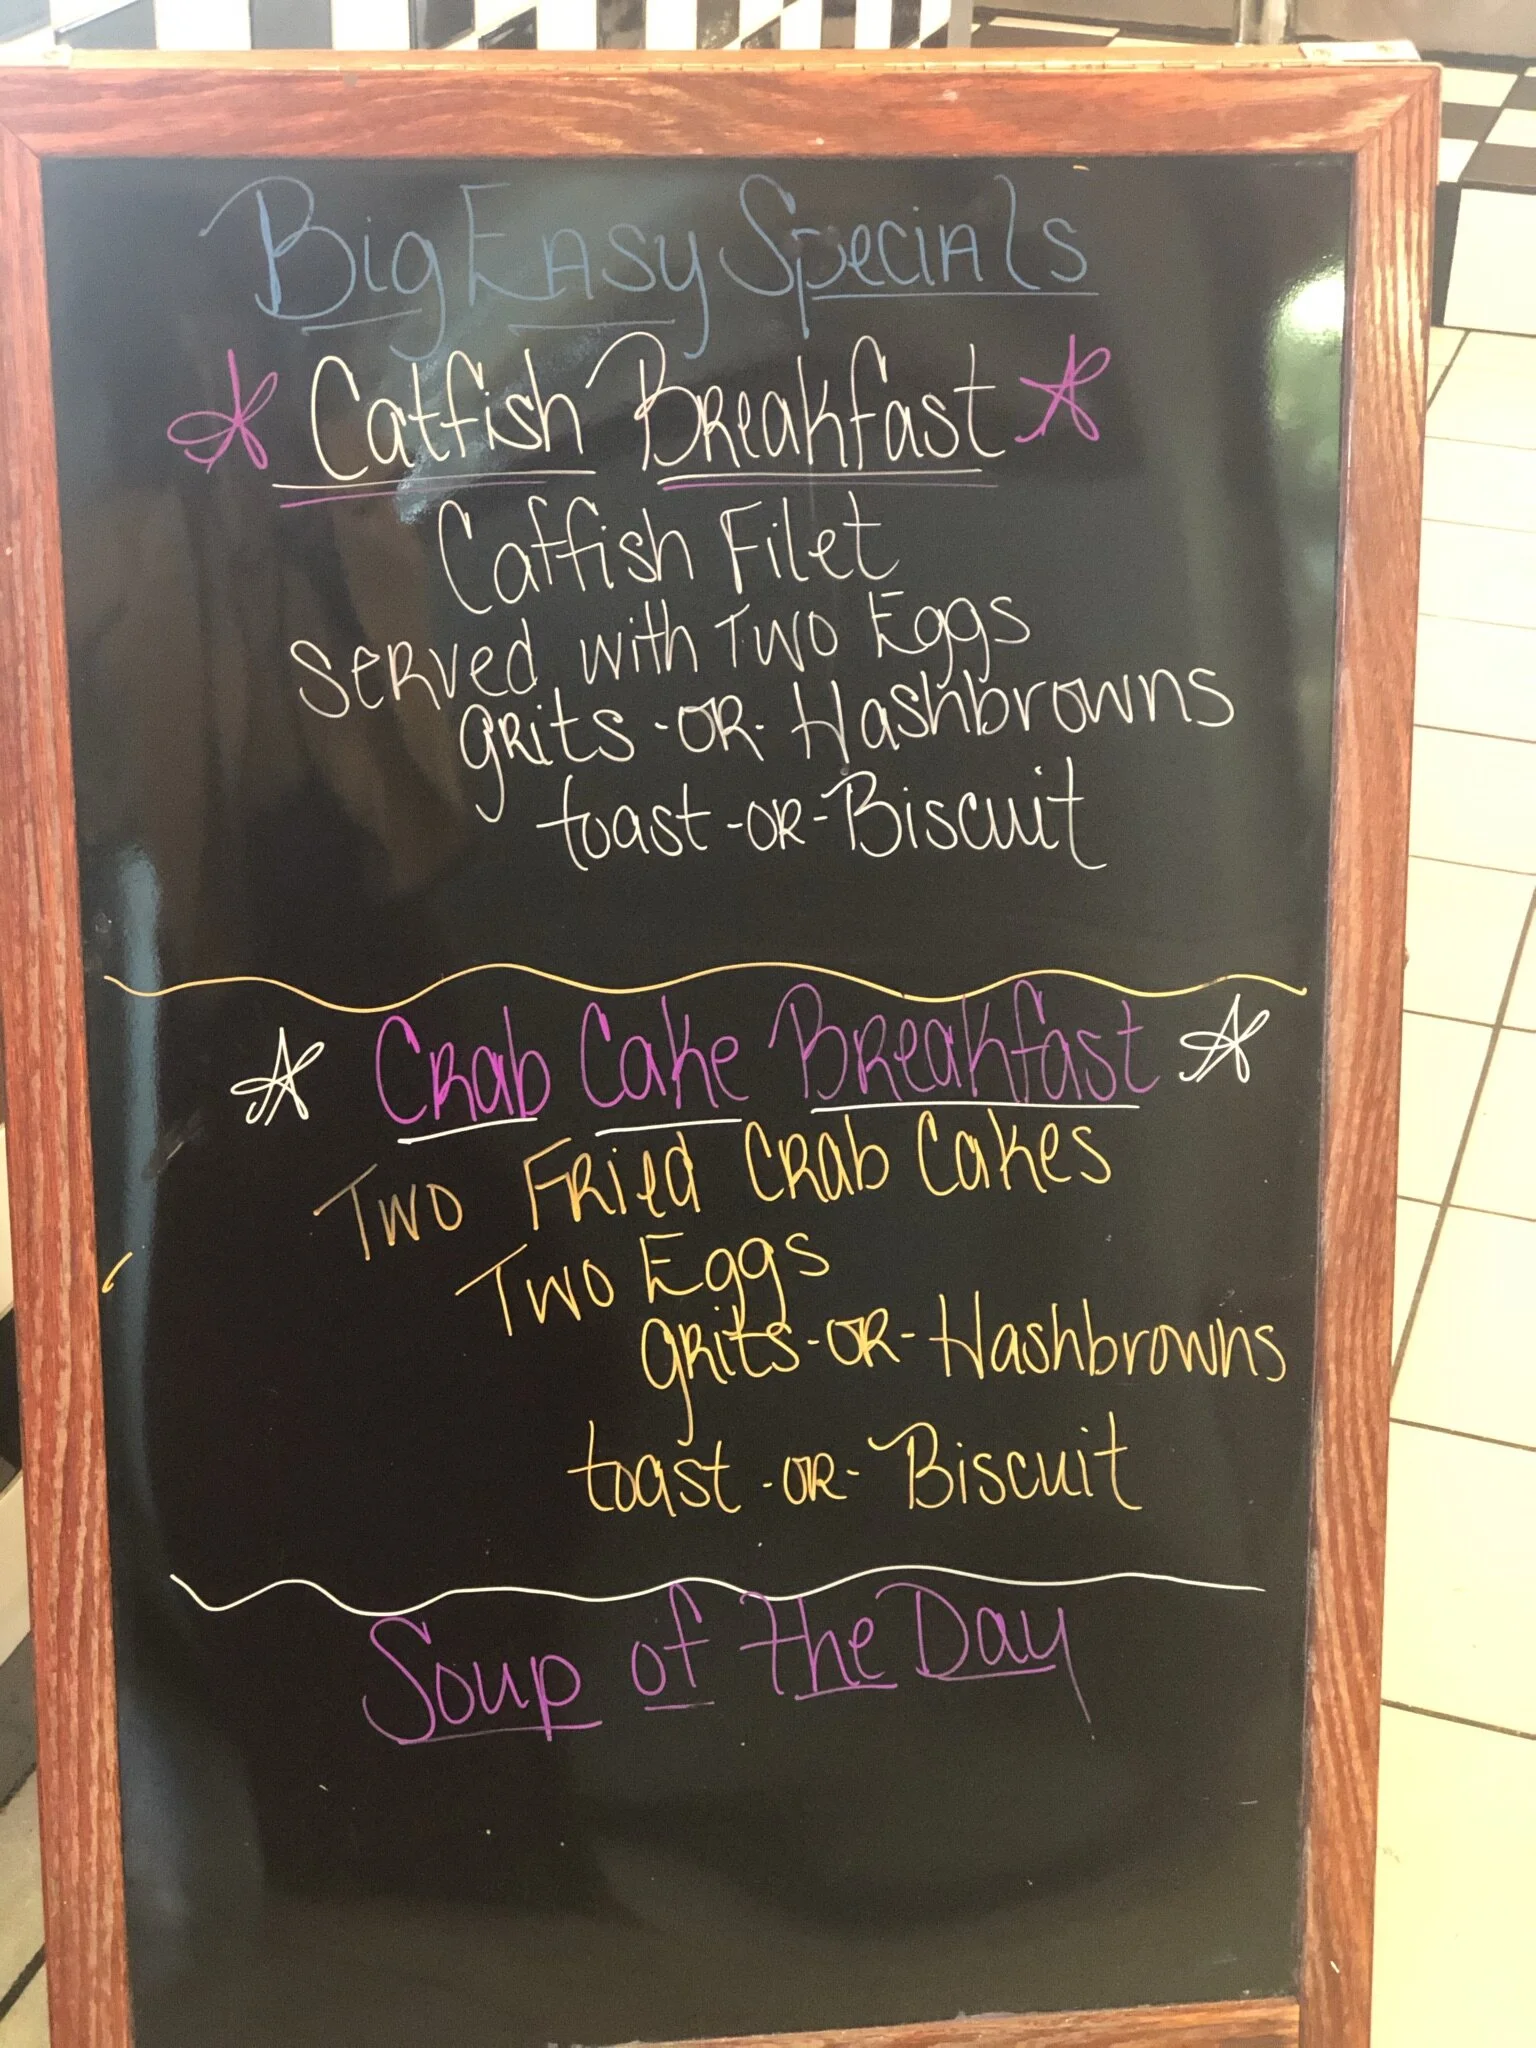 Big Easy Specials
Catfish Breakfast
Catfish Filet
Served with Two Eggs
grits -OR- Hashbrowns
toast -OR- Biscuit
Crab Cake Breakfast
Two Fried Crab Cakes
Two Eggs
grits -OR- Hashbrowns
toast -OR- Biscuit
Soup of the Day